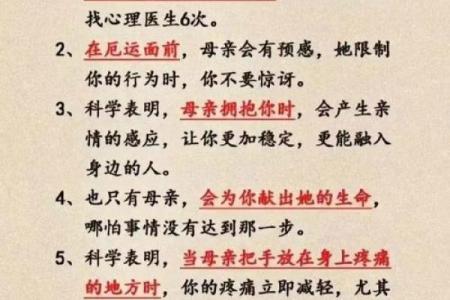 找心理医生6次。
2、在厄运面前，母亲会有预感，她限制
你的行为时，你不要惊讶。
3、科学表明，母亲拥抱你时，会产生亲
情的感应，让你更加稳定，更能融入
身边的人。
4、也只有母亲，会为你献出她的生命，
哪怕事情没有达到那一步。
5、科学表明，当母亲把手放在身上疼痛
的地方时，你的疼痛立即减轻，尤其